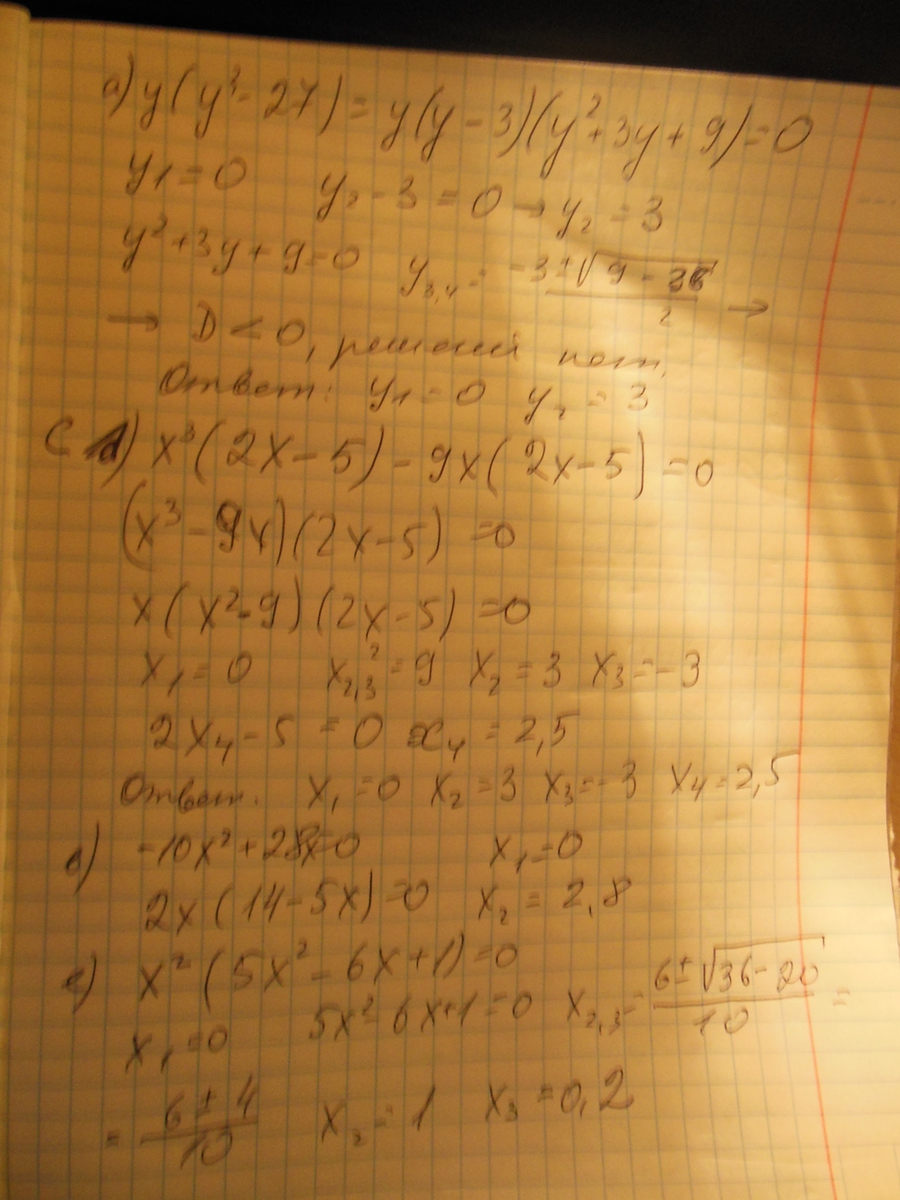 а) y(y³-27)=y(y-3)(y²+3y+9)=0
y₁=0 y₂-3=0→y₂=3
y²+3y+9=0 y₃,₄=(-3±√(9-36))/2 →
→ D<0, решений нет,
Ответ: y₁=0 y₂=3
с d) x³(2x-5)-9x(2x-5)=0
(x³-9x)(2x-5)=0
x(x²-9)(2x-5)=0
x₁=0 x₂,₃²=9 x₂=3 x₃=-3
2x₄-5=0 x₄=2,5
Ответ. x₁=0 x₂=3 x₃=-3 x₄=2,5
в) -10x²+28x=0 x₁=0
2x(14-5x)=0 x₂=2,8
x²(5x²-6x+1)=0
x₁=0 5x²-6x+1=0 x₂,₃=(6±√(36-20))/10=
=(6±4)/10 x₂=1 x₃=0,2